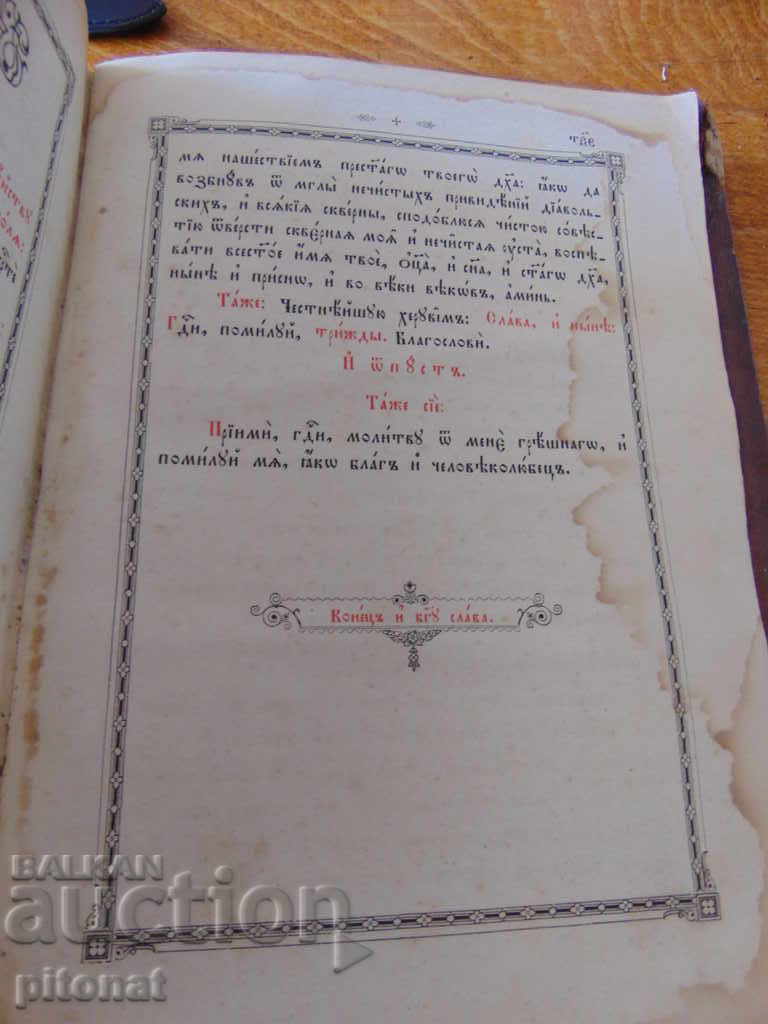 тв҃е
мѧ̀ наше́ствїемъ прест҃а́гѡ твоегѡ̀ дх҃а: ꙗ҆́кѡ да
возбнꙋ́въ ѿ мглы̀ нечи́стыхъ привидѣ́нїй дїа́воль-
скихъ, и҆ всѧ́кїѧ скве́рны, сподо́блюсѧ чи́стою со́вѣс-
тїю ѿве́рсти скве́рнаѧ моѧ̑ и҆ нечи̑стаѧ ᲂу҆ста̀, воспѣ-
ва́ти всест҃о́е и҆́мѧ твоѐ, ѻ҆ц҃а̀, и҆ сн҃а, и҆ ст҃а́гѡ дх҃а,
ны́нѣ и҆ при́снѡ, и҆ во вѣ́ки вѣкѡ́въ, а҆ми́нь.
Та́же: Честнѣ́йшꙋю херꙋві̑мъ: Сла́ва, и҆ ны́нѣ:
Гд҇и, поми́лꙋй, три́жды. Благословѝ.
И҆ ѿпꙋ́стъ.
Та́же сїѐ:
Прїимѝ, гд҇и, моли́твꙋ ѿ менє̀ грѣ́шнагѡ, и҆
поми́лꙋй мѧ̀, ꙗ҆́кѡ бла́гъ и҆ человѣколю́бецъ.
Коне́цъ и҆ бг҃ꙋ сла́ва.
BALKAN
auction
pitonat